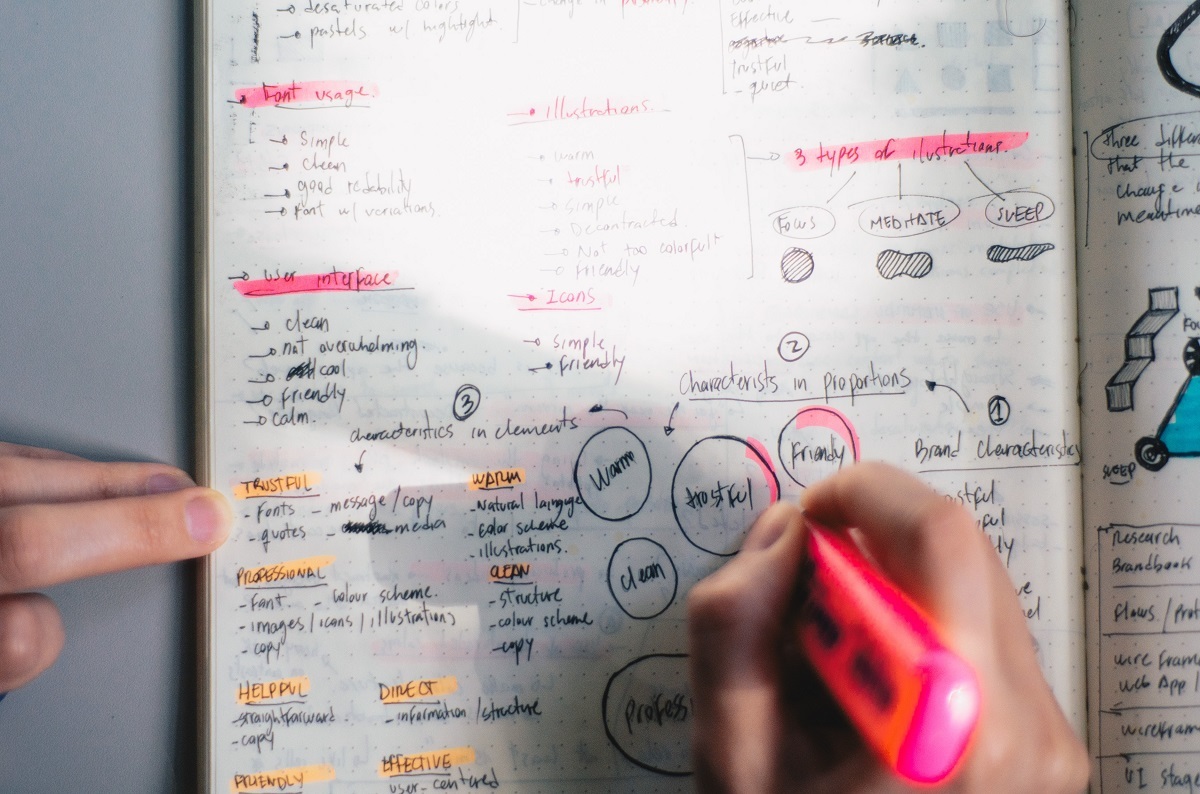 desaturated colors
pastels w/ hightlight.
Font usage.
Simple
Clean
good redability
Font w/ variations.
User interface
clean
not overwhelming.
cool
Friendly
calm.
change in
Illustrations.
warm
trustful
simple
Decontracted.
Not too colorfult
Friendly
Icons
simple
Friendly
Effective
trustful
- quiet.
3 types of ilustrations.
Focus
MEDITATE
SLEEP
2
Characterists in proportions
1
Brand Characteristics
3
characteristics in elements
Warm
trustful
Friendly
clean
profess
TRUSTFUL
- Fonts - message/copy
- quotes - media
WARM
- Natural language
- Color scheme
- illustrations.
PROFESSIONAL
- Font. - Colour scheme.
- images/icons/illustrations
- copy
CLEAN
- structure
- colour scheme
- copy
HELPFUL
- straightforward
- copy
DIRECT
- information/structure
FRIENDLY
EFFECTIVE
user-centered
three differen
that the
change
meantime
SLEEP
Research
Brandbook
flows /Pro
wire frame
web App /
wireframe
UI stage